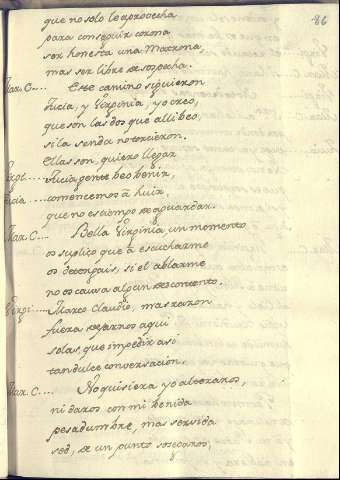 86
que no solo le aprovecha
para conseguir corona
ser honesta una Matrona,
mas ser libre de sospecha.
Mar. C.... Este camino siguieron
Licia, y Virginia, y creo,
que son las dos que alli beo,
si la senda no torcieron.
Ellas son, quiero llegar
Virgi.... Licia gente beo benir,
Licia.... comencemos à huir,
que no es tiempo de aguardar.
Mar. C.... Bella Virginia un momento
os suplico que à escucharme
os detengais, si el ablarme
no os causa algun descontento.
Virgi.... Marco Claudio, mas razon
fuera dejarnos aqui
solas, que impedir asi
tan dulce conversacion.
Mar. C.... No quisiera yo alteraros,
ni daros con mi benida
pesadumbre, mas servida
sed, de un punto sosegaros,